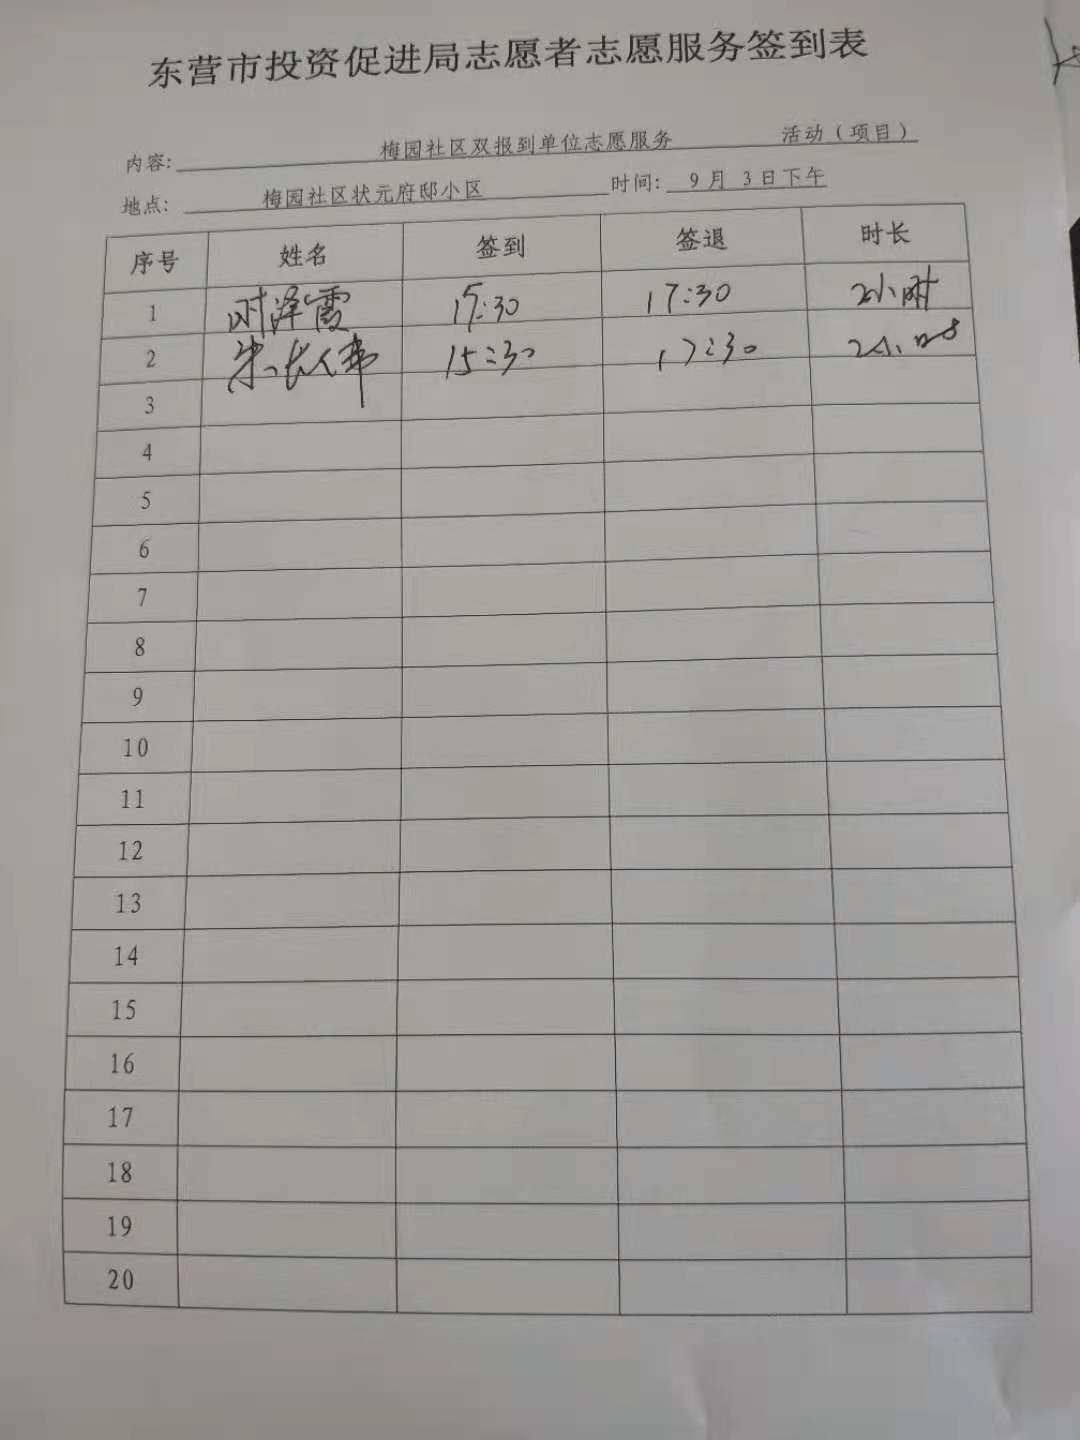 东营市投资促进局志愿者志愿服务签到表
内容: 梅园社区双报到单位志愿服务 活动（项目）
地点: 梅园社区状元府邸小区 时间: 9月 3日下午
序号 姓名 签到 签退 时长
1 时泽霞 15:30 17:30 2小时
2 15:30 17:30 2小时
3
4
5
6
7
8
9
10
11
12
13
14
15
16
17
18
19
20